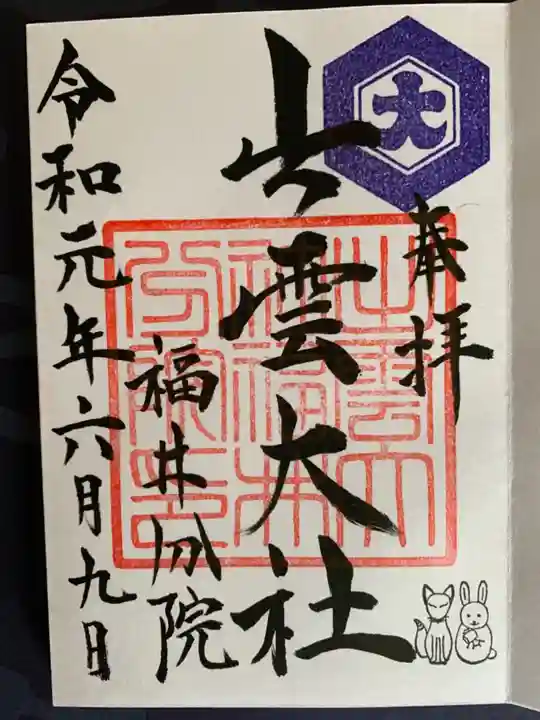 奉拝
大
出雲大社
出雲大
社福井
分院之印
福井分院
令和元年六月九日